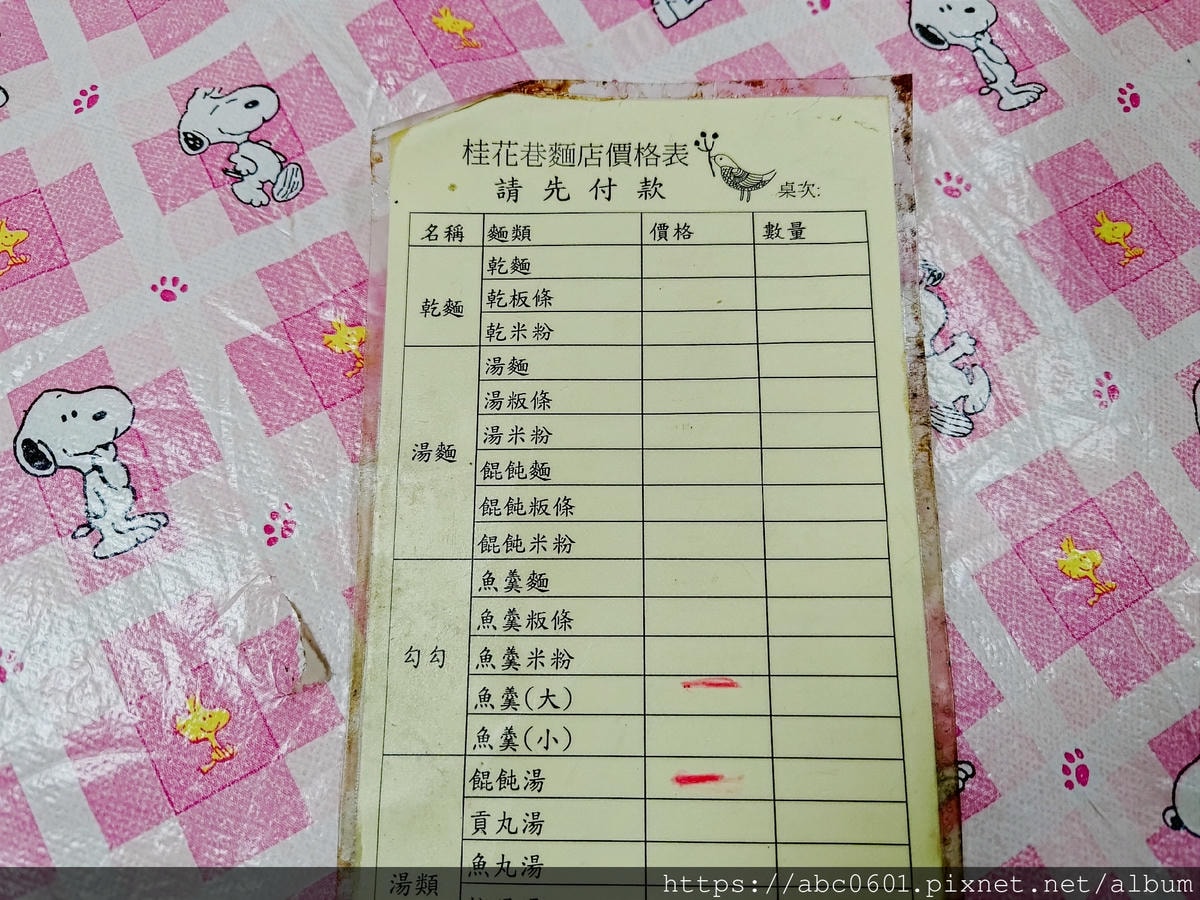 桂花巷麵店價格表
請先付款 桌次:
名稱 麵類 價格 數量
乾麵
乾麵
乾板條
乾米粉
湯麵
湯麵
湯粄條
湯米粉
餛飩麵
餛飩粄條
餛飩米粉
勾勾
魚羹麵
魚羹粄條
魚羹米粉
魚羹(大)
魚羹(小)
湯類
餛飩湯
貢丸湯
魚丸湯
https://abc0601.pixnet.net/album